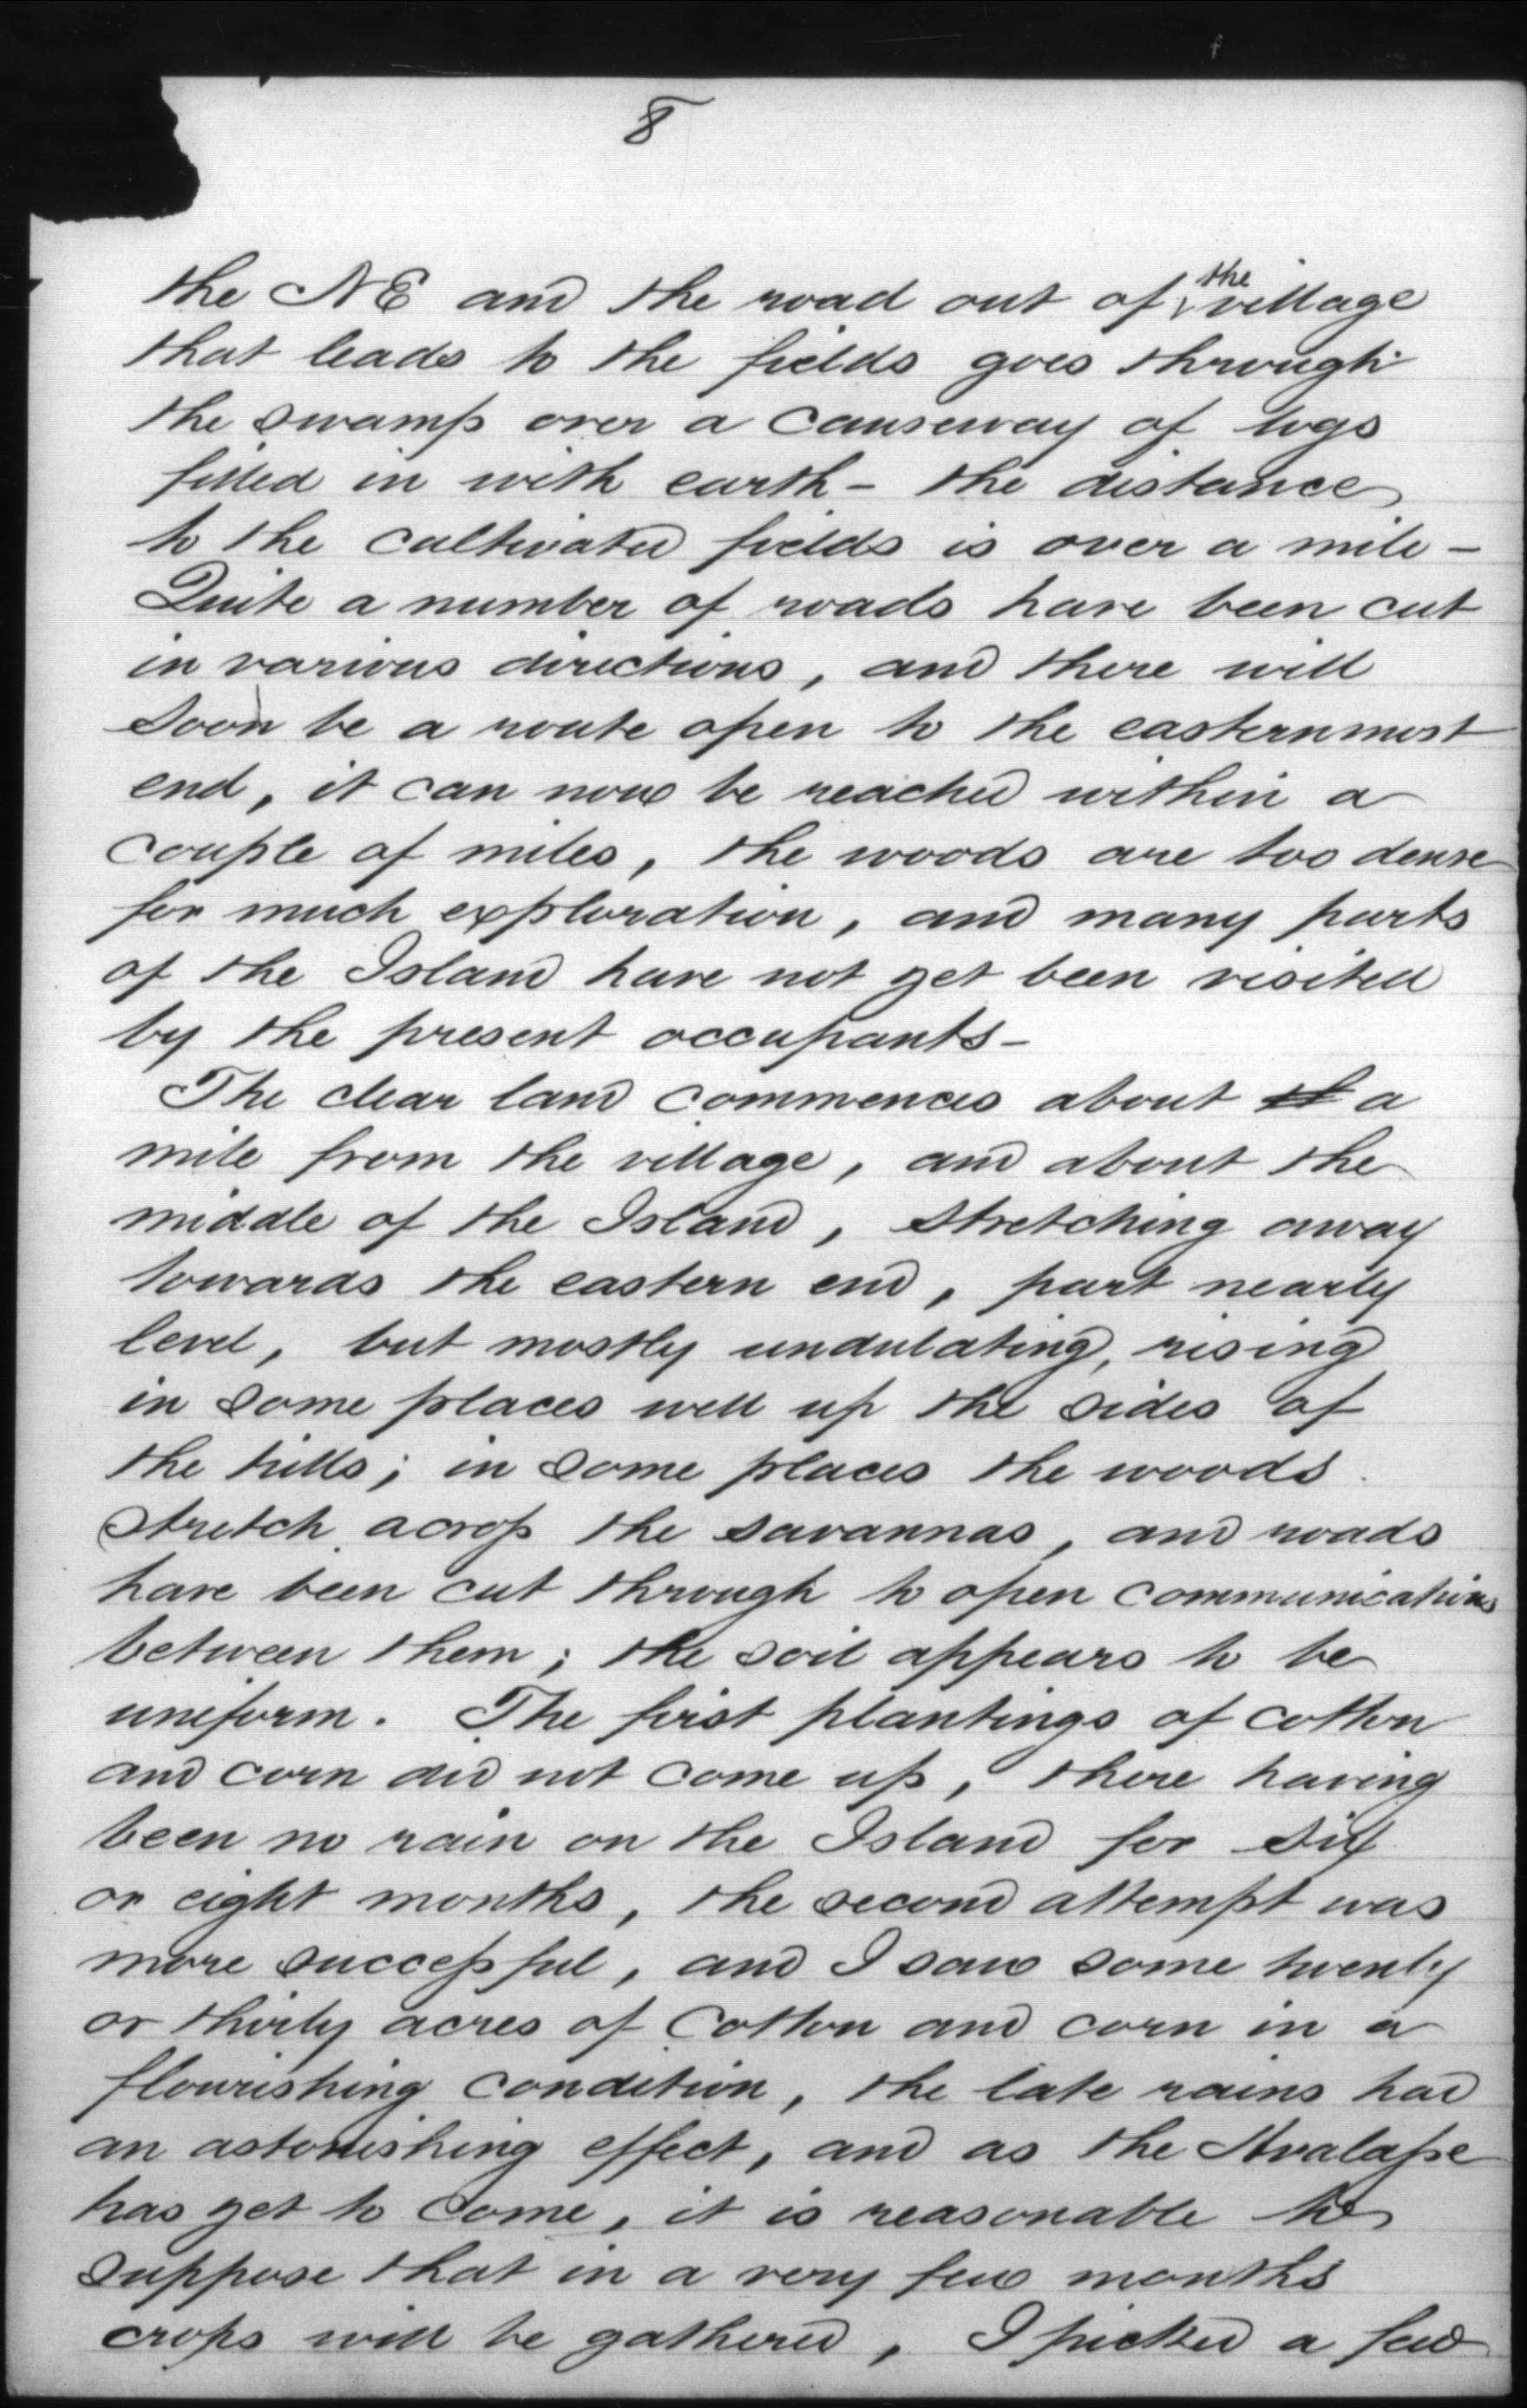 8
the NE and the road out of the village
that leads to the fields goes through
the swamp over a causeway of logs
filled in with earth - the distance
to the cultivated fields is over a mile -
Quite a number of roads have been cut
in various directions, and there will
soon be a route open to the easternmost
end, it can now be reached within a
couple of miles, the woods are too dense
for much exploration, and many parts
of the Island have not yet been visited
by the present occupants -
The clear land commences about a
mile from the village, and about the
middle of the Island, stretching away
towards the eastern end, part nearly
level, but mostly undulating, rising
in some places well up the sides of
the hills; in some places the woods
stretch across the savannas, and roads
have been cut through to open communications
between them; the soil appears to be
uniform. The first plantings of cotton
and corn did not come up, there having
been no rain on the Island for six
or eight months, the second attempt was
more successful, and I saw some twenty
or thirty acres of cotton and corn in a
flourishing condition, the late rains had
an astonishing effect, and as the
has yet to come, it is reasonable to
suppose that in a very few months
crops will be gathered, I picked a few